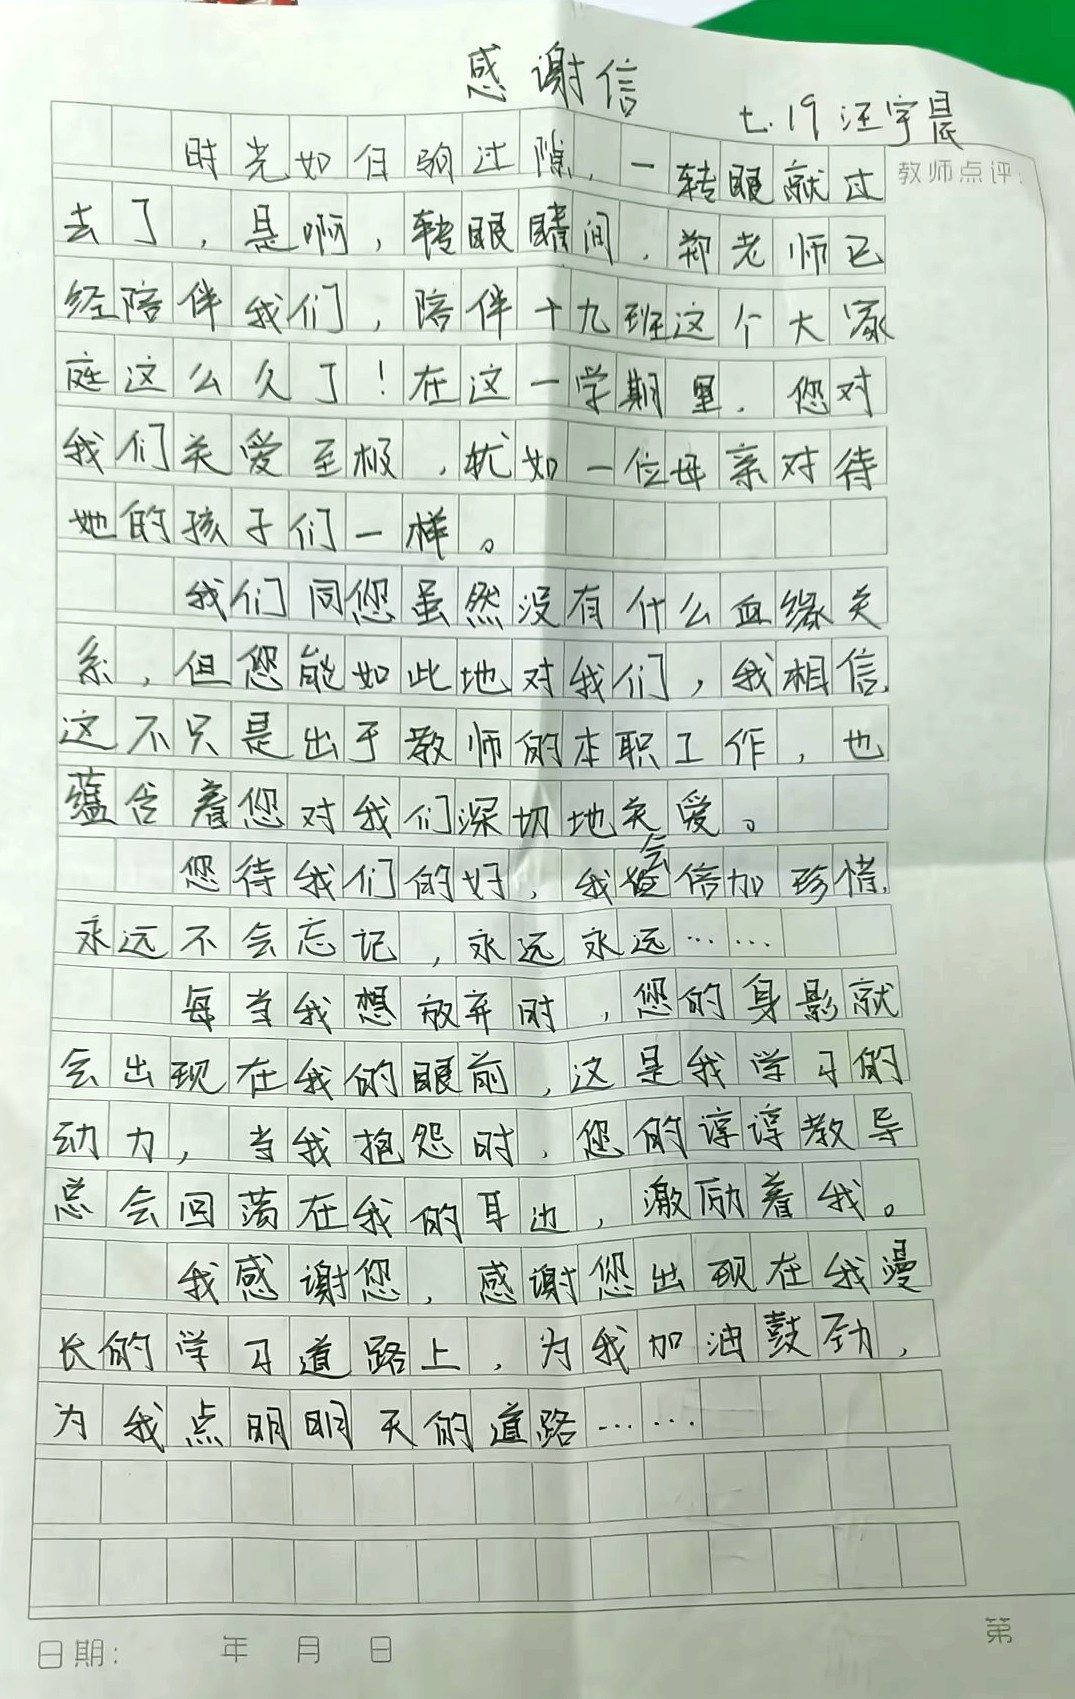 感谢信
七.19 汪宇晨
教师点评:
时光如白驹过隙,一转眼就过
去了,是啊,转眼瞎间,郑老师已
经陪伴我们,陪伴十九班这个大家
庭这么久了!在这一学期里,您对
我们关爱至极,犹如一位母亲对待
她的孩子们一样。
我们同您虽然没有什么血缘关
系,但您能如此地对我们,我相信,
这不只是出于教师的本职工作,也
蕴含着您对我们深切地关爱。
您待我们的好,我会倍加珍惜,
永远不会忘记,永远永远……
每当我想放弃时,您的身影就
会出现在我的眼前,这是我学习的
动力,当我抱怨时,您的谆谆教导
总会回荡在我的耳边,激励着我。
我感谢您,感谢您出现在我漫
长的学习道路上,为我加油鼓劲,
为我点明明天的道路……
日期: 年 月 日
第